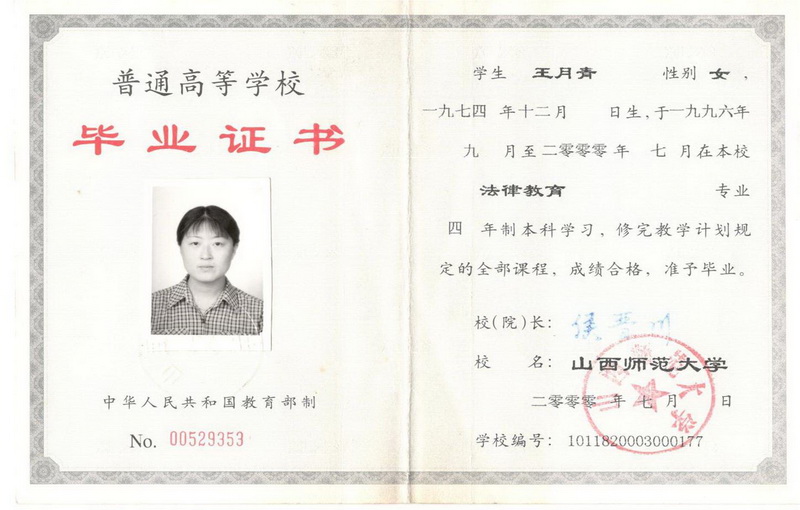 普通高等学校
毕业证书
中华人民共和国教育部制
No. 00529353
学生 王月青 性别 女，
一九七四 年十二月 日生，于一九九六年
九 月至二零零零年 七 月在本校
法律教育 专业
四 年制本科学习，修完教学计划规
定的全部课程，成绩合格，准予毕业。
校(院)长：侯晋川
校 名：山西师范大学
二零零零 年 七 月 日
学校编号：1011820003000177
山西师范大学